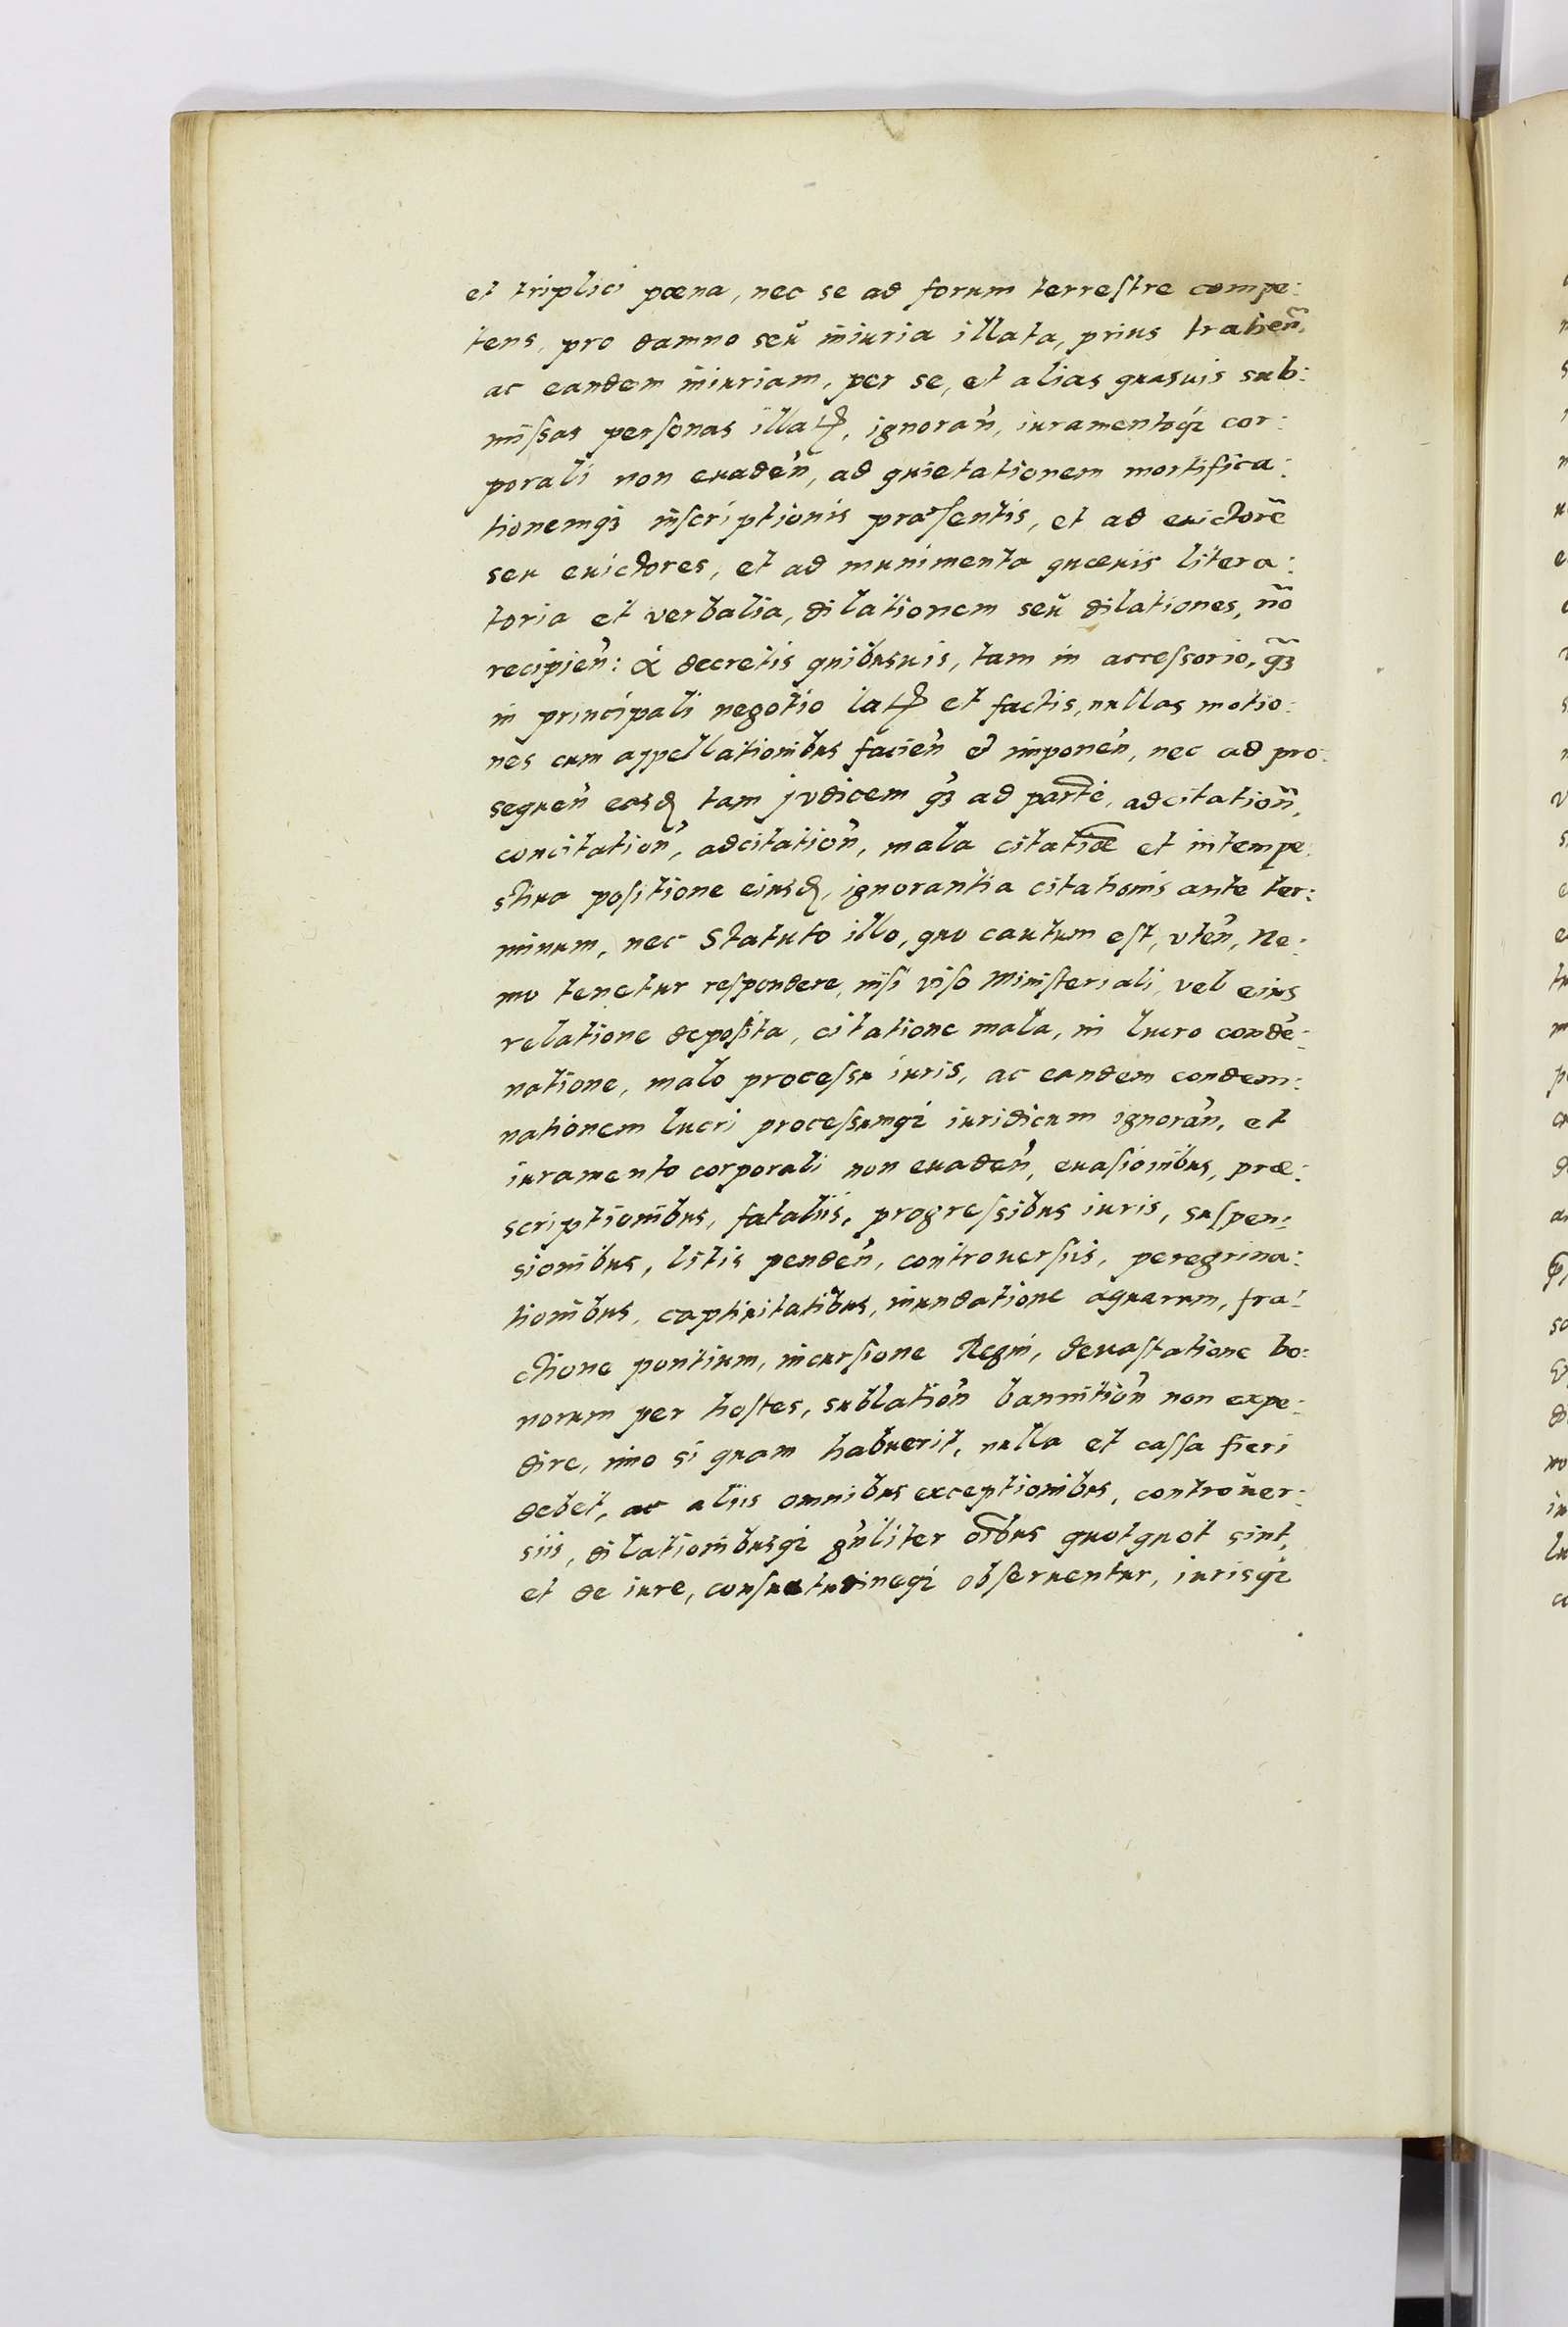 et triplici pœna, nec se ad forum terreſtre compe:
tens, pro damno seŭ iniuria illata, prius trahen̄,
ac eandem iniuriam, per se, et alias quasuis sub:
miſsas perſonas illaꝶ, ignoran̓, iuramentoqꝫ cor:
porali non euaden̓, ad quietationem mortifica:
tionemqꝫ inſcriptionis præſentis, et ad euictorē
seu euictores, et ad munimenta quæuis litera:
toria et verbalia, dilationem seŭ dilationes, nō
recipien̓: à decretis quibusuis, tam in acceſsorio, q̄ꝫ
in principali negotio laꝶ et factis, nullas motio:
nes cum appellationibus facien̓ et imponen̓, nec ad pro:
sequen̓ easꝺ tam jvdicem q̓ꝫ ad partē, adcitation̄,
concitation̓, adcitation̓, mala citatiōe et intempe:
stiua poſitione eiusꝺ, ignorantia citationis ante ter:
minum, nec Statuto illo, quo cautum eſt, vten̓, Ne:
mo tenetur reſpondere, niſi viſo Miniſteriali, vel eius
relatione depoſita, citatione mala, in lucro condē:
natione, malo proceſsu iuris, ac eandem condem:
nationem lucri proceſsumqꝫ iuridicum ignoran̓, et
iuramento corporali non euaden̓, euaſionibus, præ:
scriptionibus, fataliis, progreſsibus iuris, suſpen:
sionibus, litis penden̓, controuerſiis, peregrina:
tionibus, captiuitatibus, inundatione aquarum, fra:
ctione pontium, incurſione Regni, deuaſtatione bo:
norum per hoſtes, sublation̓ bannition̓ non expe:
dire, imo si quam habuerit, nulla et caſſa fieri
debet, ac aliis omnibus exceptionibus, controŭer:
siis, dilationibusqꝫ gn̓liter oībus quotquot sint,
et de iure, conſuetudineqꝫ obſeruentur, iurisqꝫ